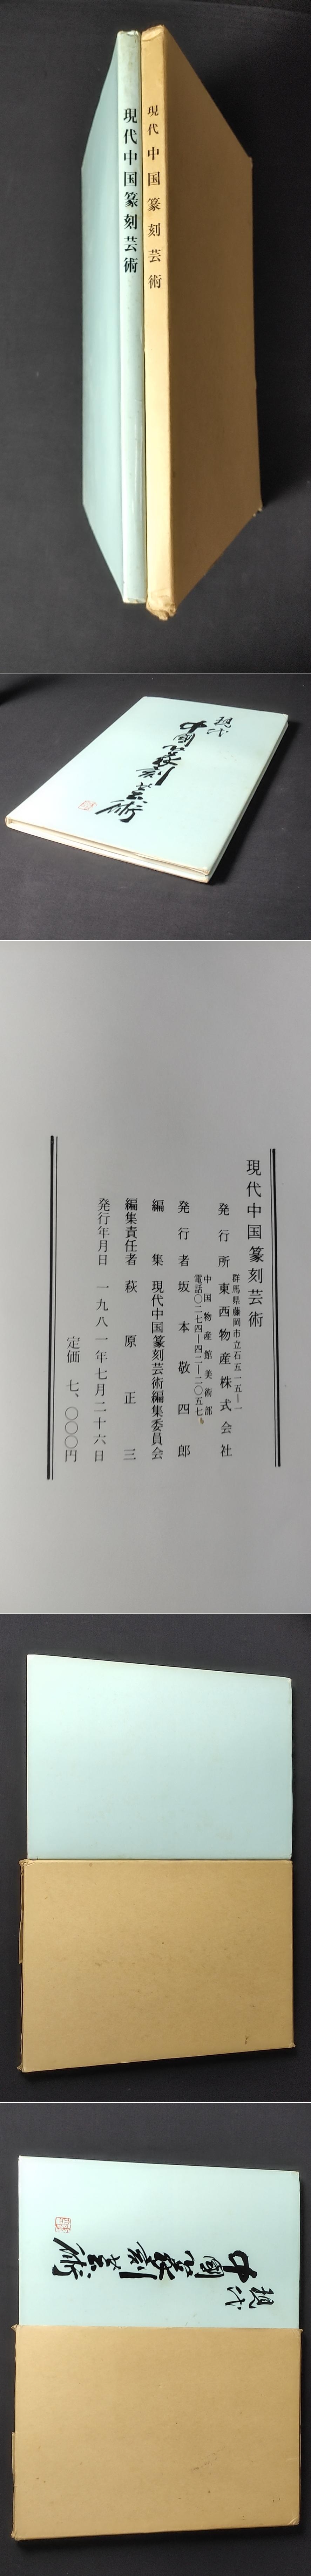 現代中国篆刻芸術
現代中国篆刻芸術
現代
中國篆刻芸術
現代中国篆刻芸術
群馬県藤岡市立石五一五―一
発行所 東西物産株式会社
中国物産館美術部
電話〇二七四―四二―二〇五七
発行者 坂本敬四郎
編集 現代中国篆刻芸術編集委員会
編集責任者 萩原正三
発行年月日 一九八一年七月二十六日
定価 七、〇〇〇円
現代
中國篆刻芸術